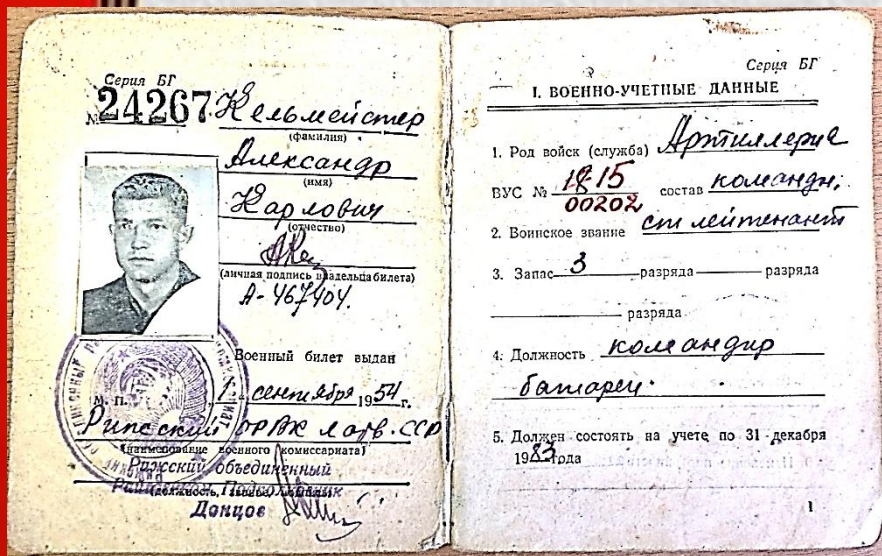 Серия БГ
№ 24267
Кельмейстер
(фамилия)
Александр
(имя)
Карлович
(отчество)
(личная подпись владельца билета)
А-467404.
Военный билет выдан
М. П.
1 сентября 1954 г.
Рижский ОРВК Латв. ССР
(наименование военного комиссариата)
Рижский объединенный
Подполковник
Донцов
Серия БГ
I. ВОЕННО-УЧЕТНЫЕ ДАННЫЕ
1. Род войск (служба) Артиллерия
ВУС № 1815 состав командн.
00202
2. Воинское звание ст лейтенант
3. Запас 3 разряда разряда
разряда
4. Должность командир
батареи.
5. Должен состоять на учете по 31 декабря
1983 года
1